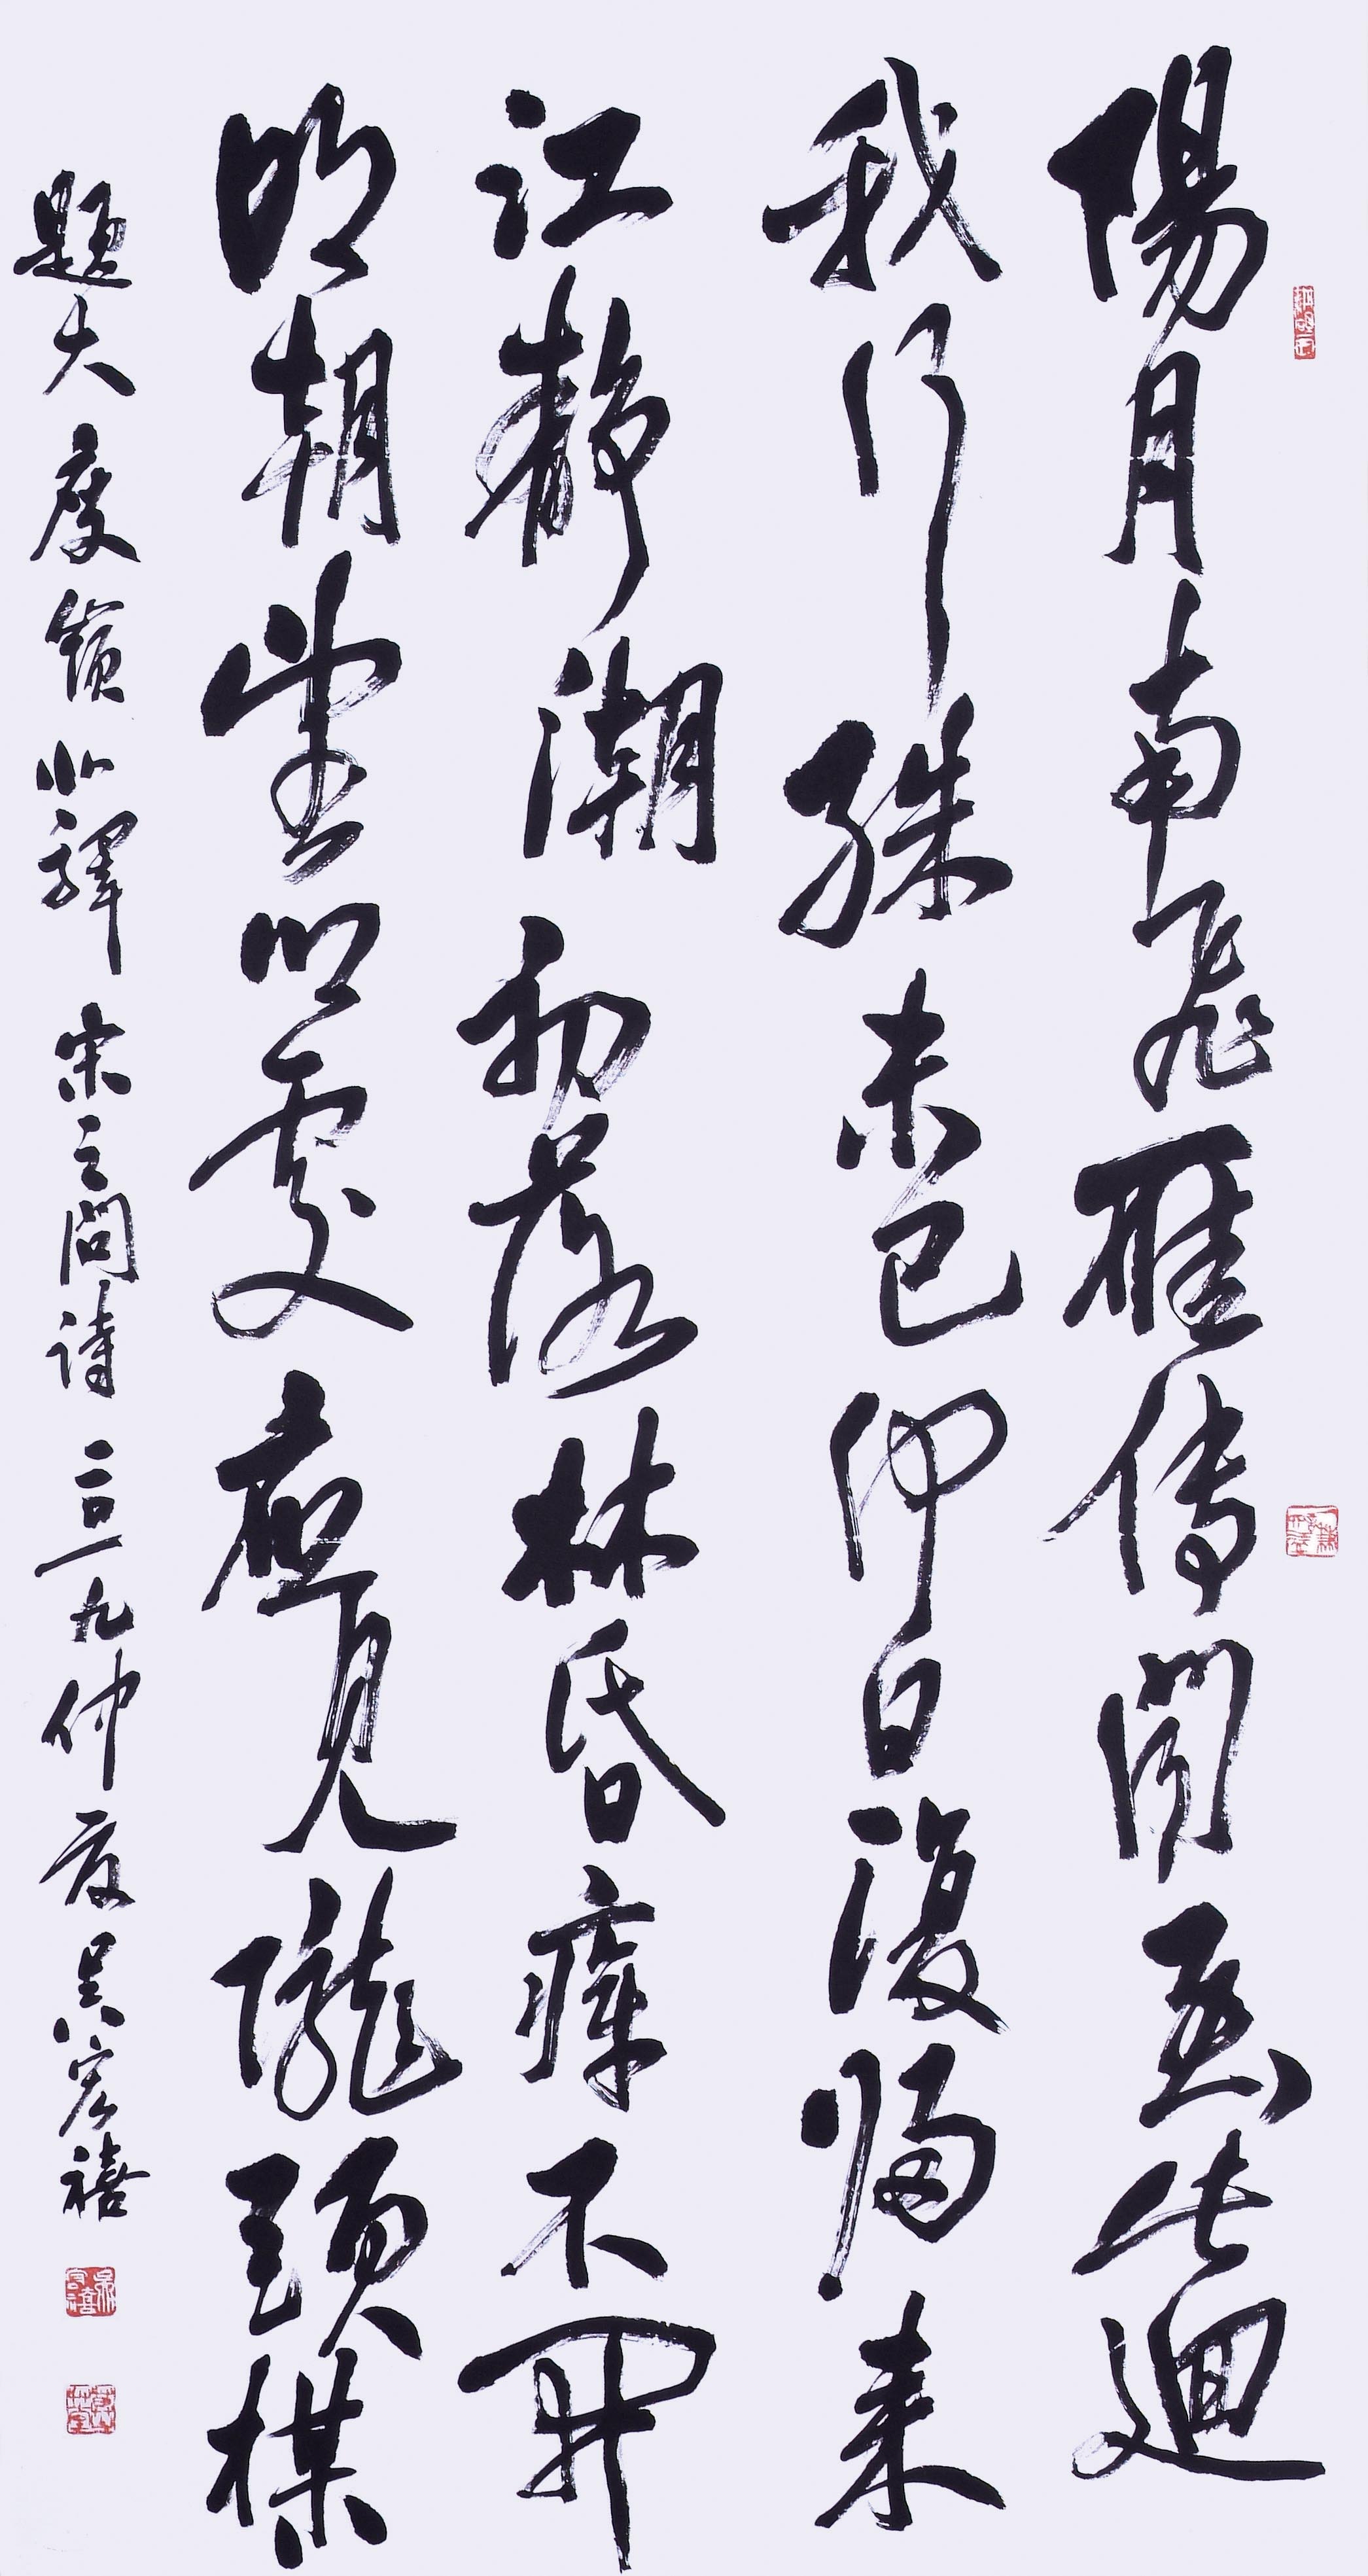 陽月南飛雁傳聞至此迴
我行殊未已何日復歸来
江靜潮初落林昏瘴不開
明朝望鄉處應見隴頭楳
題大庾嶺北驛 宋之問詩 二〇一九仲夏 吳宏禧